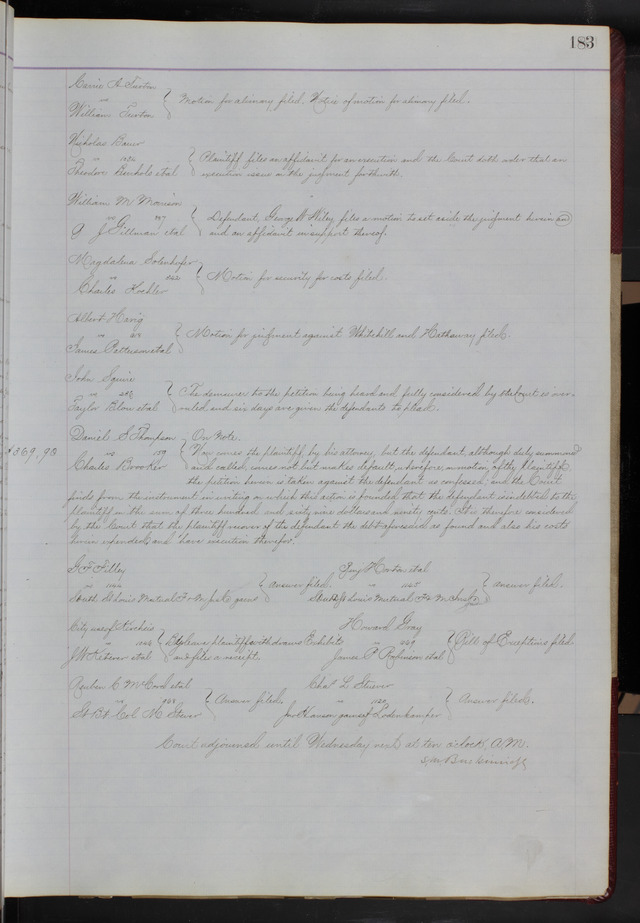 183
Carrie A. Tuxton
vs
William Tuxton } Motion for alimony filed. Notice of motion for alimony filed.
Nicholas Bauer
vs
Theodore et al } Plaintiff files an affidavit for an execution and the Court doth order that an
execution issue on the judgment forthwith.
William M Morrison
vs
J Gillman et al } Defendant, George W Wiley files a motion to set aside the judgment herein
and an affidavit in support thereof.
Magdalena
vs
Charles Koehler } Motion for security for costs filed.
Albert Harig
vs
James Patterson et al } Motion for judgment against Whitehill and Hathaway filed.
John Squire
vs
Taylor Blow et al } The demurrer to the petition being heard and fully considered by the Court is over-
ruled and six days are given the defendants to plead.
Daniel S Thompson On Note.
$369.90 vs 159 } Now comes the plaintiff, by his attorney, but the defendant, although duly summoned
Charles Brooker and called, comes not but makes default; wherefore, on motion of the plaintiff
the petition herein is taken against the defendant as confessed; and the Court
finds from the instrument in writing on which this action is founded, that the defendant is indebted to the
plaintiff in the sum of three hundred and sixty nine dollars and ninety cents. It is therefore considered
by the Court that the plaintiff recover of the defendant the debt aforesaid as found and also his costs
herein expended, and have execution therefor.
G F Filley
vs
South St Louis Mutual F & M Ins Co } Answer filed.
Benj Horton et al
vs
South St Louis Mutual F & M Ins Co } Answer filed.
City use of
vs
J W et al } plaintiff withdraws Exhibits
and files a receipt.
Howard Gray
vs
James P Robinson et al } Bill of Exceptions filed.
Reuben C McCord et al
vs
Col M Stever } Answer filed.
Chas L
vs
} Answer filed.
Court adjourned until Wednesday next at ten o'clock, A.M.